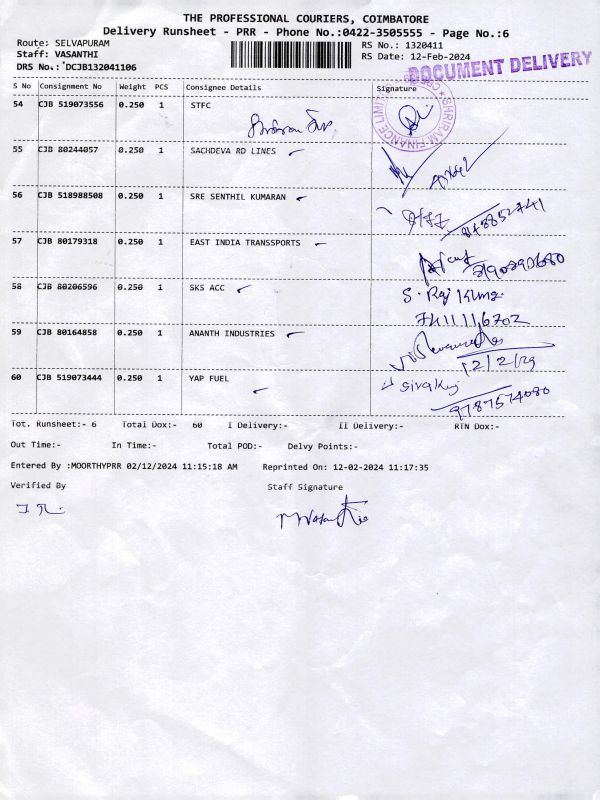 THE PROFESSIONAL COURIERS, COIMBATORE
Delivery Runsheet - PRR - Phone No.:0422-3505555 - Page No.:6
Route: SELVAPURAM
RS No.: 1320411
Staff: VASANTHI
RS Date: 12-Feb-2024
DRS No.: DCJB132041106
DOCUMENT DELIVERY
S No Consignment No Weight PCS Consignee Details Signature
54 CJB 519073556 0.250 1 STFC
SHRIRAM FINANCE LIMITED
55 CJB 80244057 0.250 1 SACHDEVA RD LINES
56 CJB 518988508 0.250 1 SRE SENTHIL KUMARAN
57 CJB 80179318 0.250 1 EAST INDIA TRANSSPORTS
58 CJB 80206596 0.250 1 SKS ACC
S. Raj Kumar
59 CJB 80164858 0.250 1 ANANTH INDUSTRIES
12/2/24
60 CJB 519073444 0.250 1 YAP FUEL
9787574080
Tot. Runsheet:- 6 Total Dox:- 60 I Delivery:- II Delivery:- RTN Dox:-
Out Time:- In Time:- Total POD:- Delvy Points:-
Entered By :MOORTHYPRR 02/12/2024 11:15:18 AM Reprinted On: 12-02-2024 11:17:35
Verified By Staff Signature